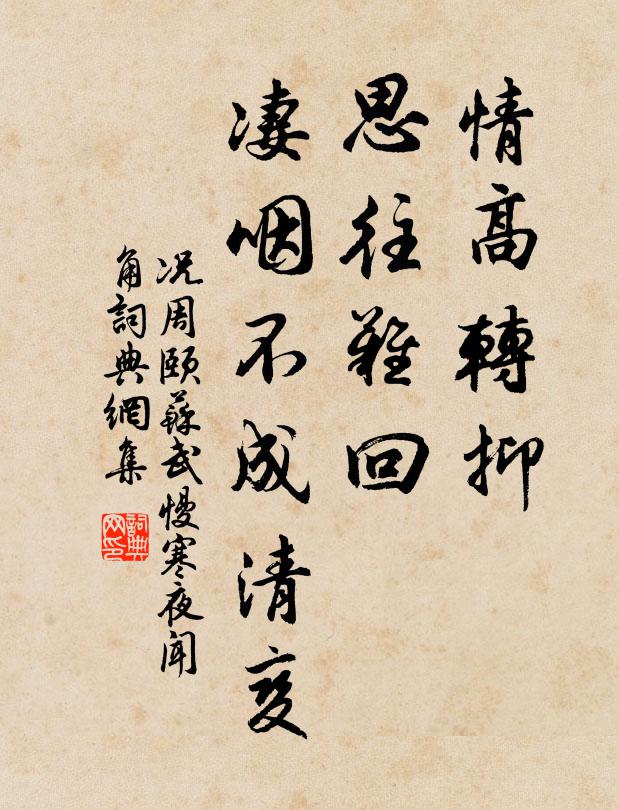 情高轉抑
思往難回
凄咽不成清变
况周頤蘇武慢寒夜聞
角詞典網集
詞典网印